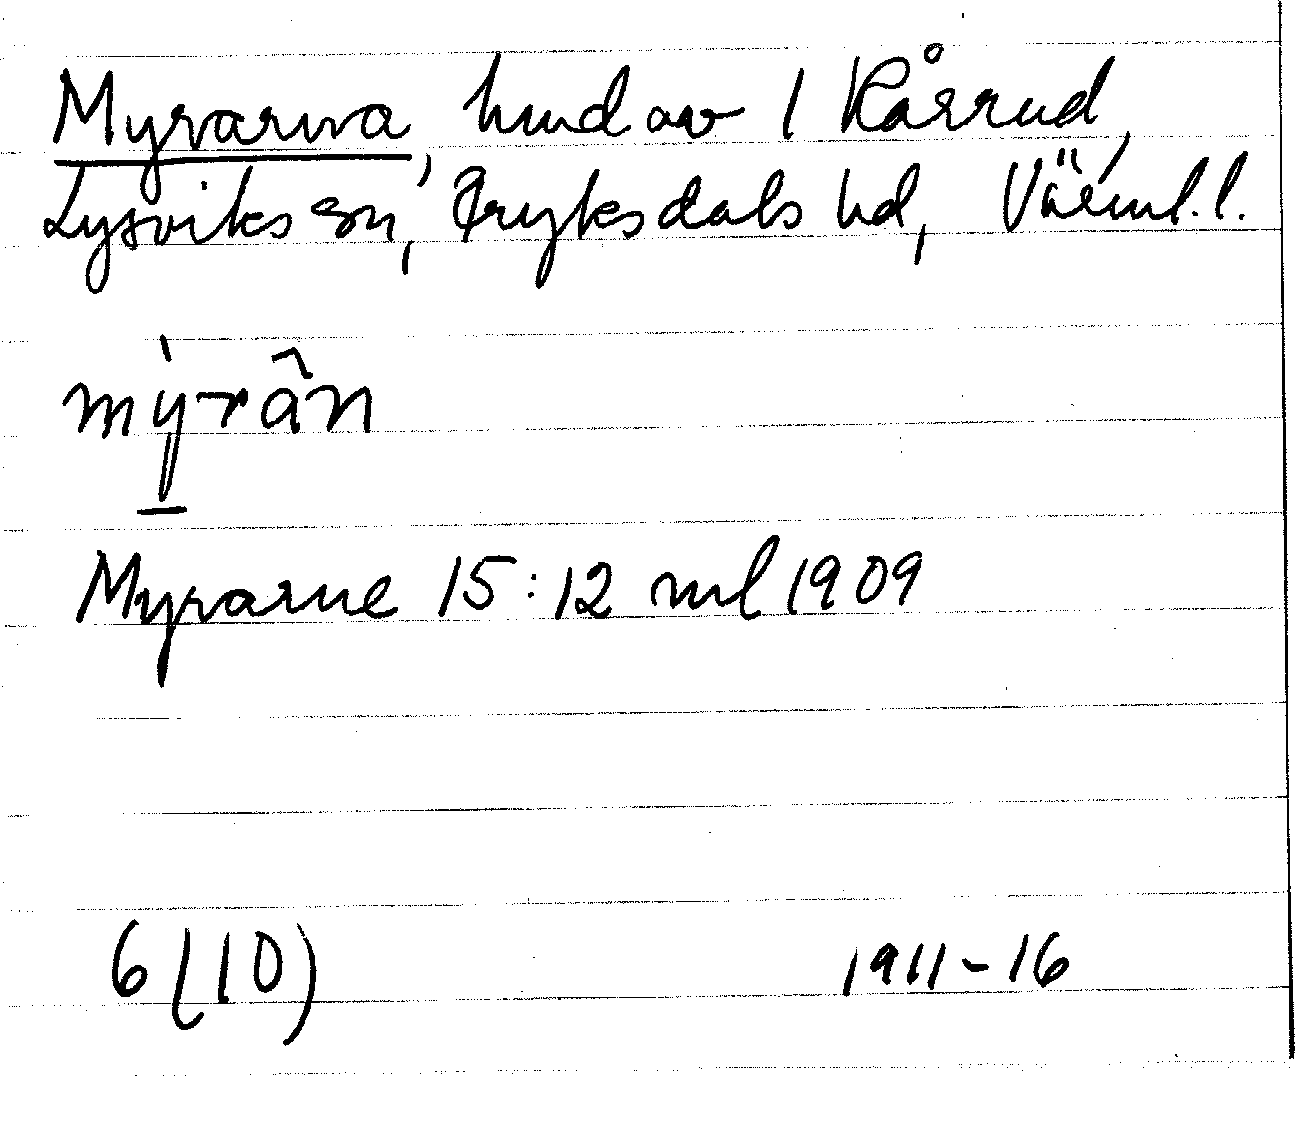 Myrarna, hmd av 1 Kårrud,
Lysviks sn, Fryksdals hd, Värml. l.
mỳrân
Myrarne 15:12 ml 1909
6 (10) 1911-16